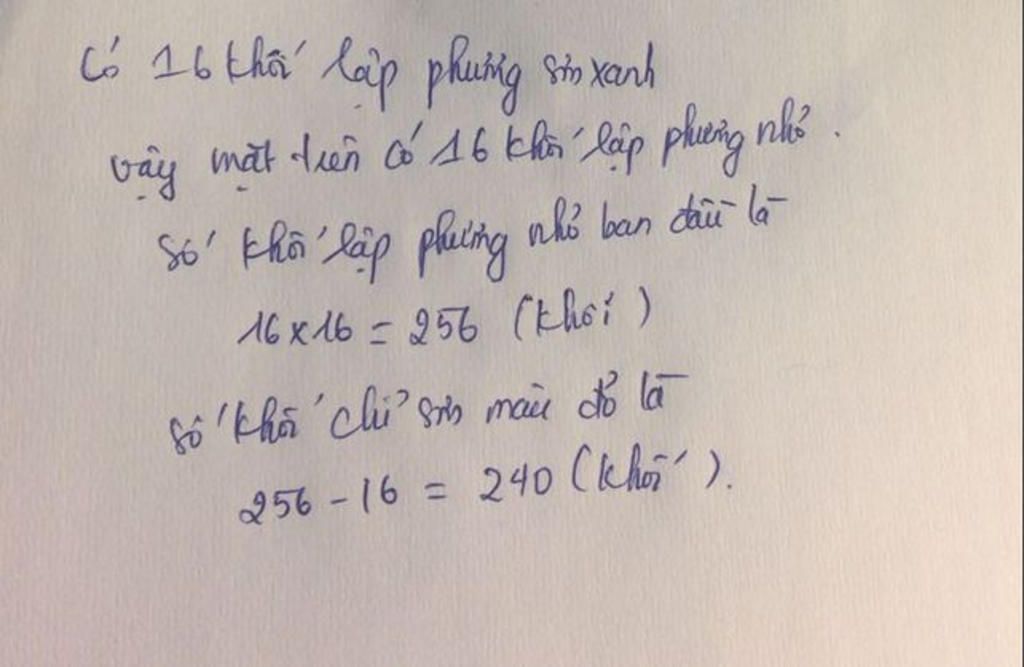 Có 16 khối lập phương sơn xanh
vậy mặt trên có 16 khối lập phương nhỏ.
Số khối lập phương nhỏ ban đầu là
16 x 16 = 256 (khối)
Số khối chỉ sơn màu đỏ là
256 - 16 = 240 (khối).